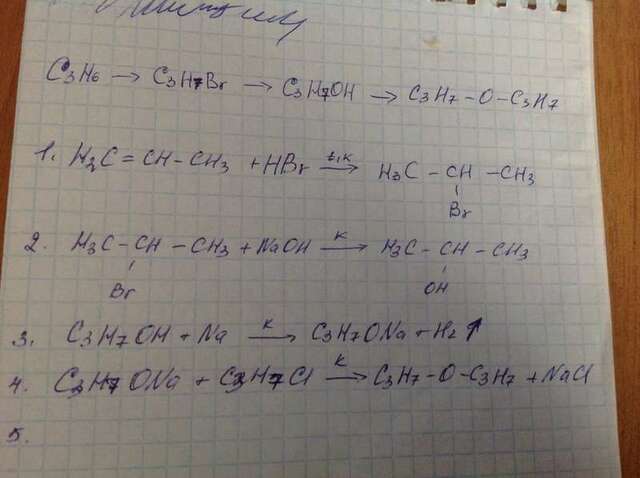 C₃H₆ → C₃H₇Br → C₃H₇OH → C₃H₇ - O - C₃H₇
1. H₂C = CH - CH₃ + HBr →(t, k) H₃C - CH - CH₃
Br
2. H₃C - CH - CH₃ + NaOH →(k) H₃C - CH - CH₃
Br OH
3. C₃H₇OH + Na →(k) C₃H₇ONa + H₂↑
4. C₃H₇ONa + C₃H₇Cl →(k) C₃H₇ - O - C₃H₇ + NaCl
5.